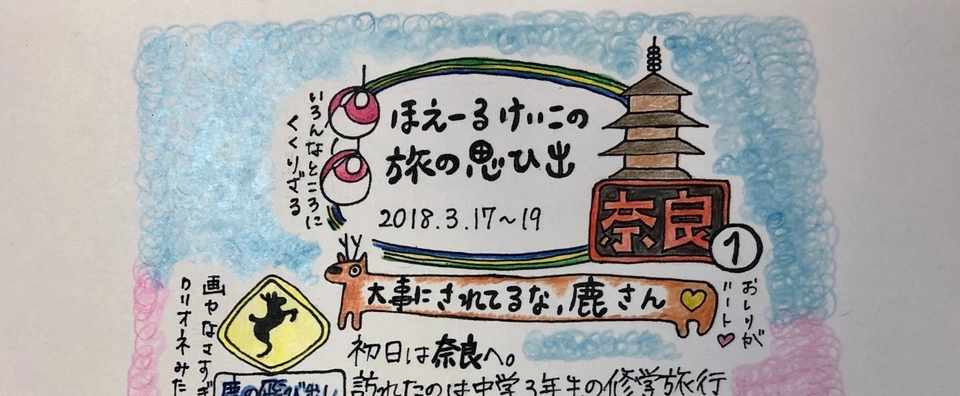 ほえーるけいこの
旅の思ひ出
2018.3.17〜19
奈良
1
いろんなところに
くくりざる
大事にされてるな、鹿さん
おしりが
ハート
初日は奈良へ。
訪れたのは中学3年生の修学旅行
画ヤなさすぎ
クリオネみた
鹿の飛び出し